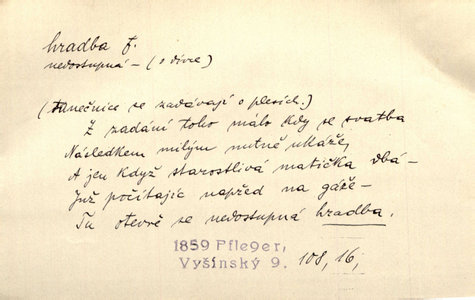 hradba f.
nedostupná – (o dívce)
(tanečnice se zadávají o plesích.)
Z zadání toho málo kdy se svatba
Následkem milým nutně ukáže,
A jen když starostlivá matička dbá –
Již počítajíc napřed na gáže –
Tu otevře se nedostupná hradba.
1859 Pfleger,
Vyšínský 9. 108, 16,